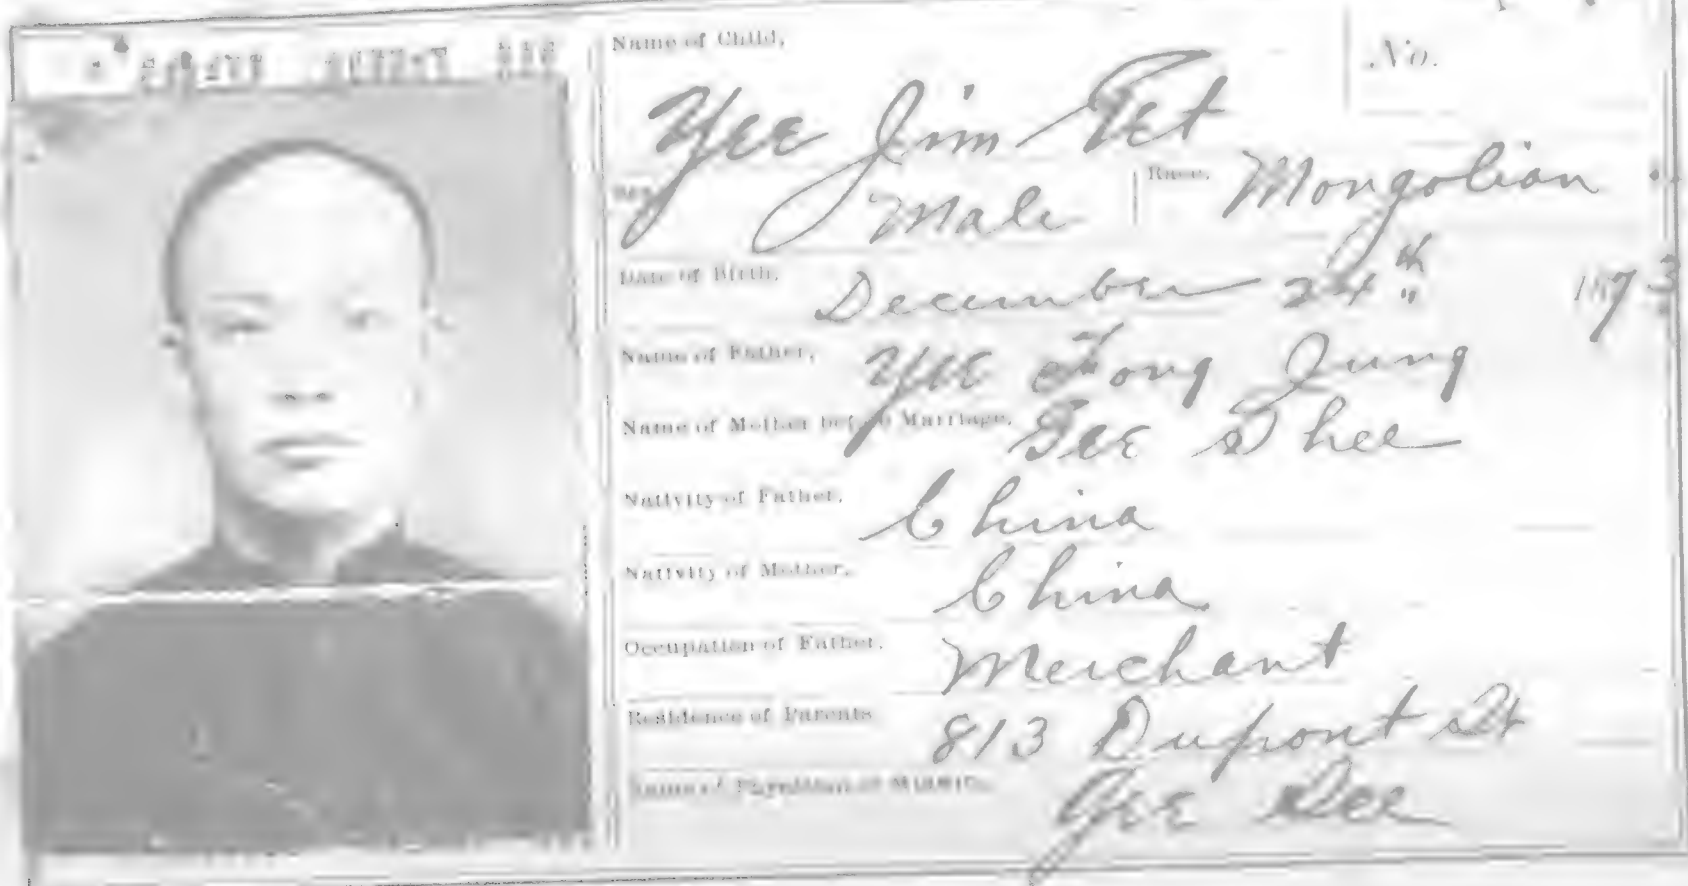 Name of Child,
No.
Yee Jim
Sex
Male
Race.
Mongolian
Date of Birth,
December 24th
1873
Name of Father,
Yee Fong Jung
Name of Mother before Marriage,
Gee Shee
Nativity of Father,
China
Nativity of Mother,
China
Occupation of Father,
Merchant
Residence of Parents
813 Dupont St
Name of Physician or Midwife,
Gee See